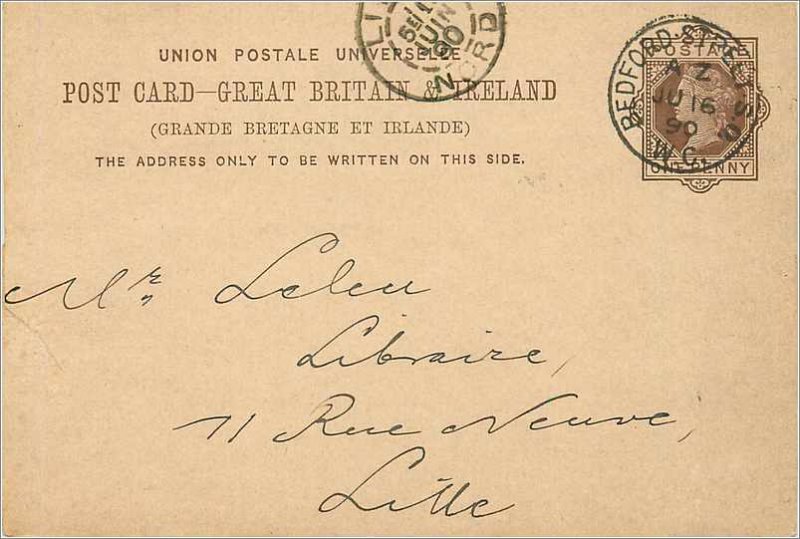 UNION POSTALE UNIVERSELLE
POST CARD—GREAT BRITAIN & IRELAND
(GRANDE BRETAGNE ET IRLANDE)
THE ADDRESS ONLY TO BE WRITTEN ON THIS SIDE.
JUIN
90
NORD
BEDFORD
W.C.
AZ
JU 16
90
POSTAGE
ONE PENNY
Mr. Leleu
Libraire,
11 Rue Neuve,
Lille